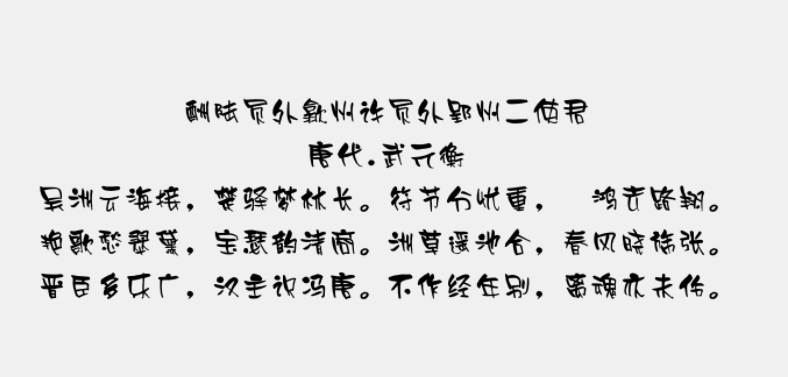 酬陆员外歙州许员外郢州二使君
唐代.武元衡
吴洲云海接，楚驿梦林长。符节分忧重， 鸿去路翔。
艳歌愁翠黛，宝瑟韵清商。洲草遥池合，春风晓旆张。
晋臣多乐广，汉主识冯唐。不作经年别，离魂亦未伤。